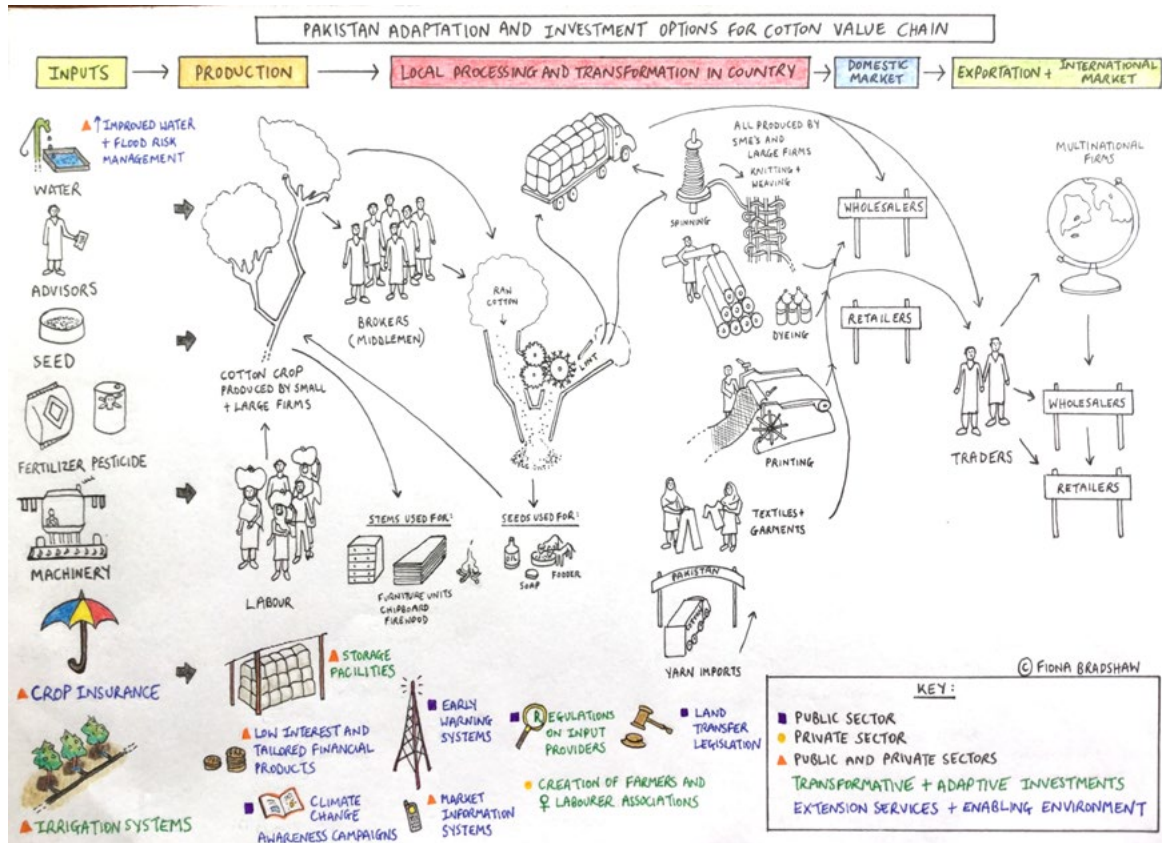 PAKISTAN ADAPTATION AND INVESTMENT OPTIONS FOR COTTON VALUE CHAIN
INPUTS
PRODUCTION
LOCAL PROCESSING AND TRANSFORMATION IN COUNTRY
DOMESTIC
MARKET
EXPORTATION + INTERNATIONAL
MARKET
↑ IMPROVED WATER
+ FLOOD RISK
MANAGEMENT
WATER
ADVISORS
SEED
FERTILIZER PESTICIDE
MACHINERY
CROP INSURANCE
IRRIGATION SYSTEMS
COTTON CROP
PRODUCED BY SMALL
+ LARGE FIRMS
LABOUR
BROKERS
(MIDDLEMEN)
RAW
COTTON
LINT
STEMS USED FOR:
FURNITURE UNITS
CHIPBOARD
FIREWOOD
SEEDS USED FOR:
OIL
SOAP
FODDER
ALL PRODUCED BY
SME'S AND
LARGE FIRMS
KNITTING +
WEAVING
SPINNING
DYEING
PRINTING
TEXTILES +
GARMENTS
PAKISTAN
YARN IMPORTS
WHOLESALERS
RETAILERS
MULTINATIONAL
FIRMS
TRADERS
WHOLESALERS
RETAILERS
STORAGE
FACILITIES
LOW INTEREST AND
TAILORED FINANCIAL
PRODUCTS
CLIMATE
CHANGE
AWARENESS CAMPAIGNS
EARLY
WARNING
SYSTEMS
MARKET
INFORMATION
SYSTEMS
REGULATIONS
ON INPUT
PROVIDERS
CREATION OF FARMERS AND
♀ LABOURER ASSOCIATIONS
LAND
TRANSFER
LEGISLATION
© FIONA BRADSHAW
KEY:
PUBLIC SECTOR
PRIVATE SECTOR
PUBLIC AND PRIVATE SECTORS
TRANSFORMATIVE + ADAPTIVE INVESTMENTS
EXTENSION SERVICES + ENABLING ENVIRONMENT